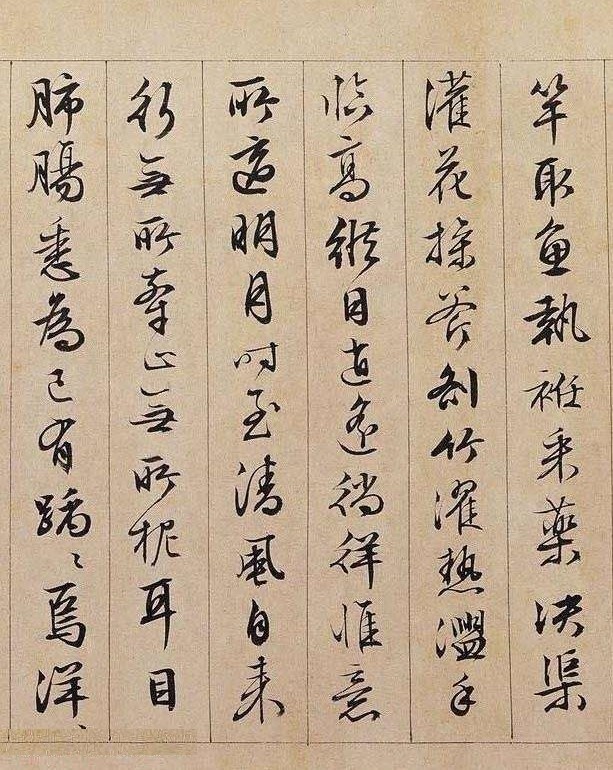 竿取魚執衽采藥決渠
灌花操斧剖竹濯熱盥手
臨高縱目逍遙徜徉惟意
所適明月時至清風自來
行無所牽止無所柅耳目
肺腸悉為己有踽〻焉洋〻